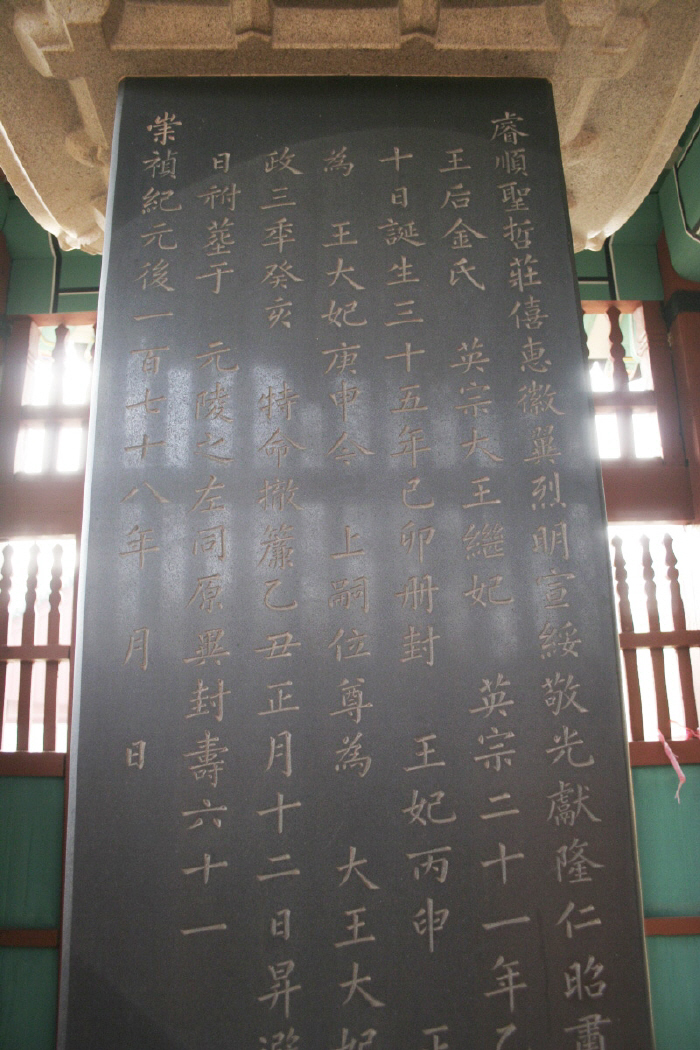 睿順聖哲莊僖惠徽翼烈明宣綏敬光獻隆仁昭肅
王后金氏 英宗大王繼妃 英宗二十一年乙
十日誕生三十五年己卯册封 王妃丙申 正
為 王大妃庚申今 上嗣位尊為 大王大妃
政三秊癸亥 特命撤簾乙丑正月十二日昇遐
日祔塟于 元陵之左同原異封壽六十一
崇禎紀元後一百七十八年 月 日